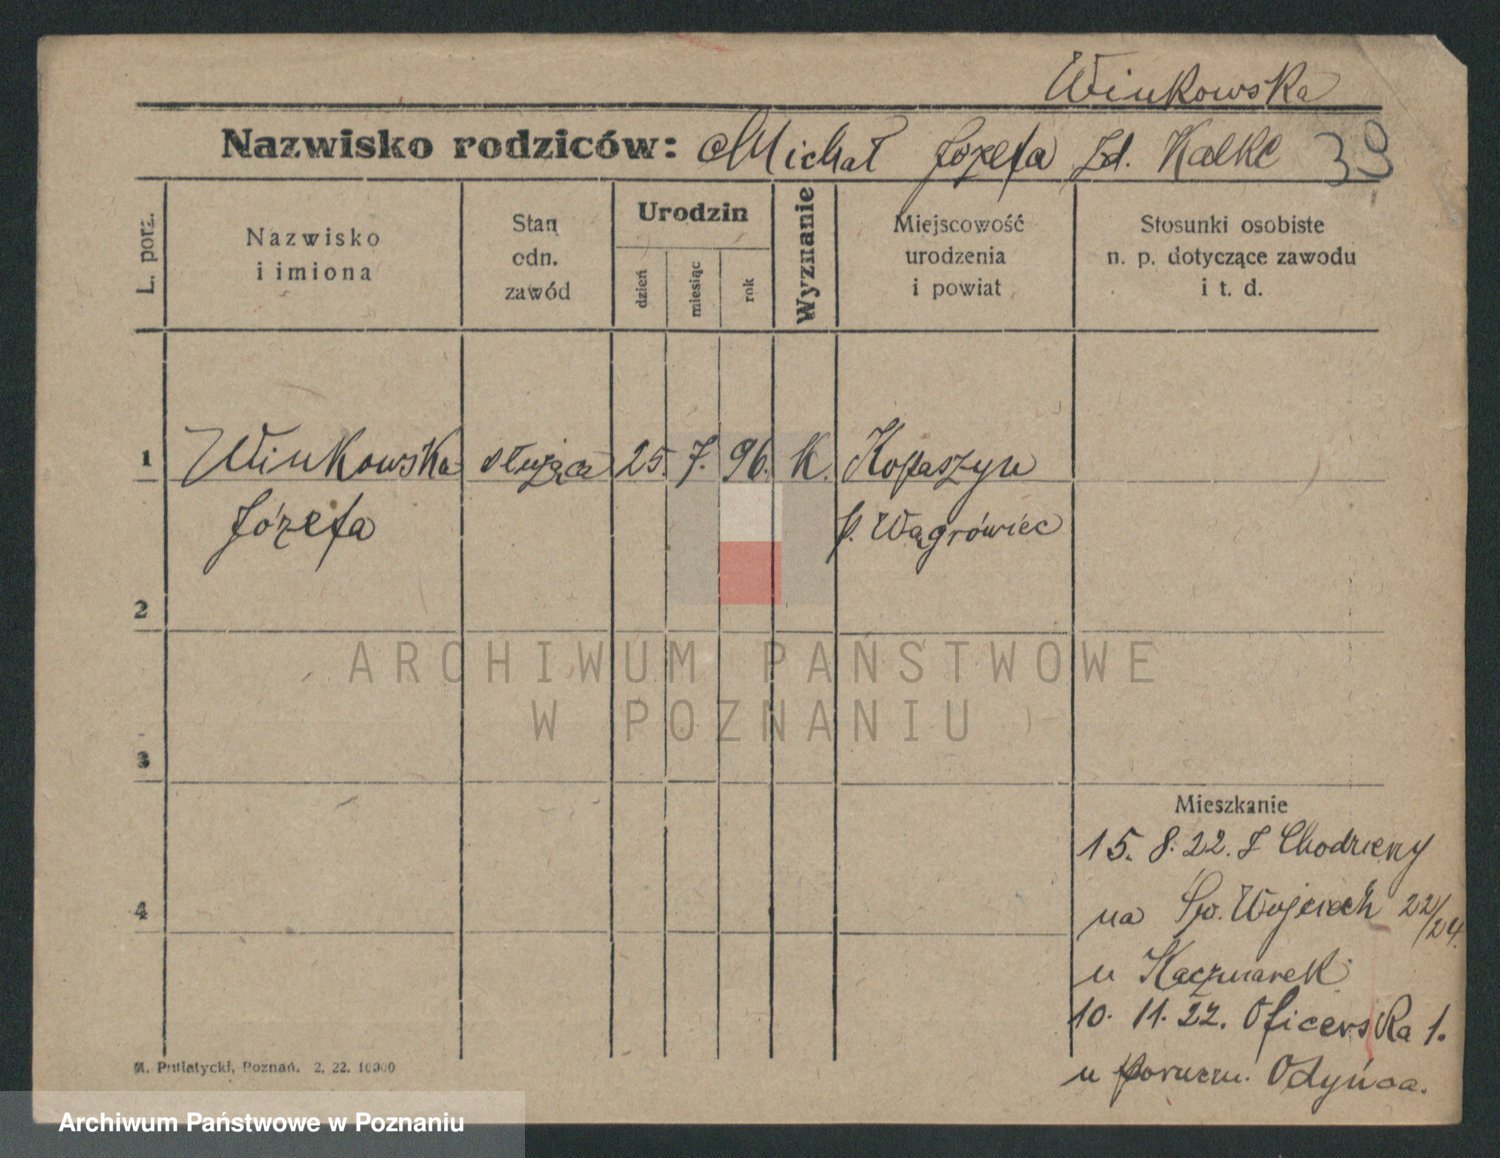 Winkowska
Nazwisko rodziców: Michał Józefa zd. Kalke 39
L. porz.
Nazwisko
i imiona
Stan
odn.
zawód
Urodzin
dzień
miesiąc
rok
Wyznanie
Miejscowość
urodzenia
i powiat
Stosunki osobiste
n. p. dotyczące zawodu
i t. d.
1 Winkowska służąca 25. 7. 96. K. Kopaszyn
Józefa p. Wągrówiec
2
ARCHIWUM PAŃSTWOWE
W POZNANIU
3
Mieszkanie
15. 8. 22. z Chodzieży
4
na Św. Wojciech 22/24.
u Kaczmarek
10. 11. 22. Oficerska 1.
u porucz. Odyńca.
M. Putiatycki, Poznań. 2. 22. 10000
Archiwum Państwowe w Poznaniu